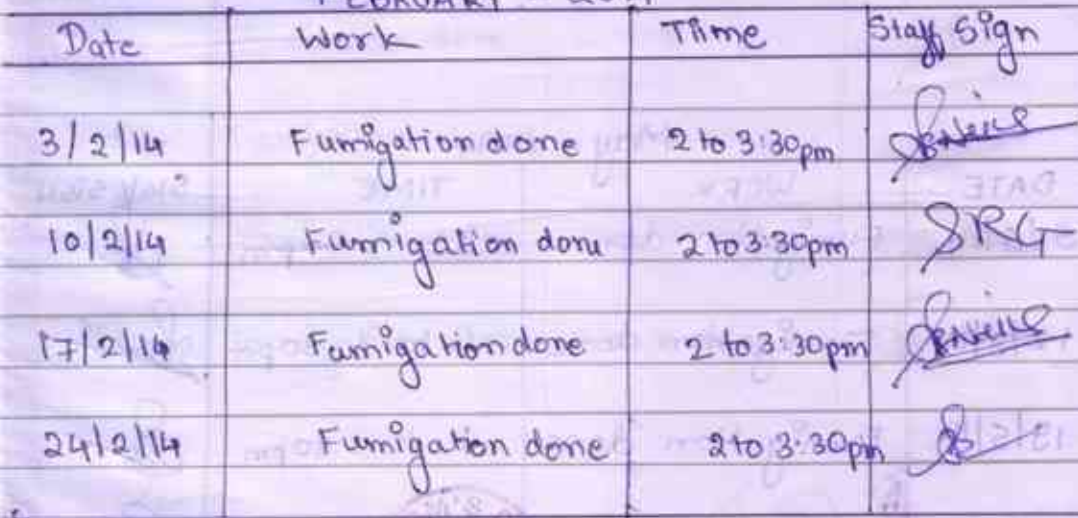 FEBRUARY
Date Work Time Staff Sign
3/2/14 Fumigation done 2 to 3:30pm
10/2/14 Fumigation done 2 to 3:30pm SRG
17/2/14 Fumigation done 2 to 3:30pm
24/2/14 Fumigation done 2 to 3:30pm